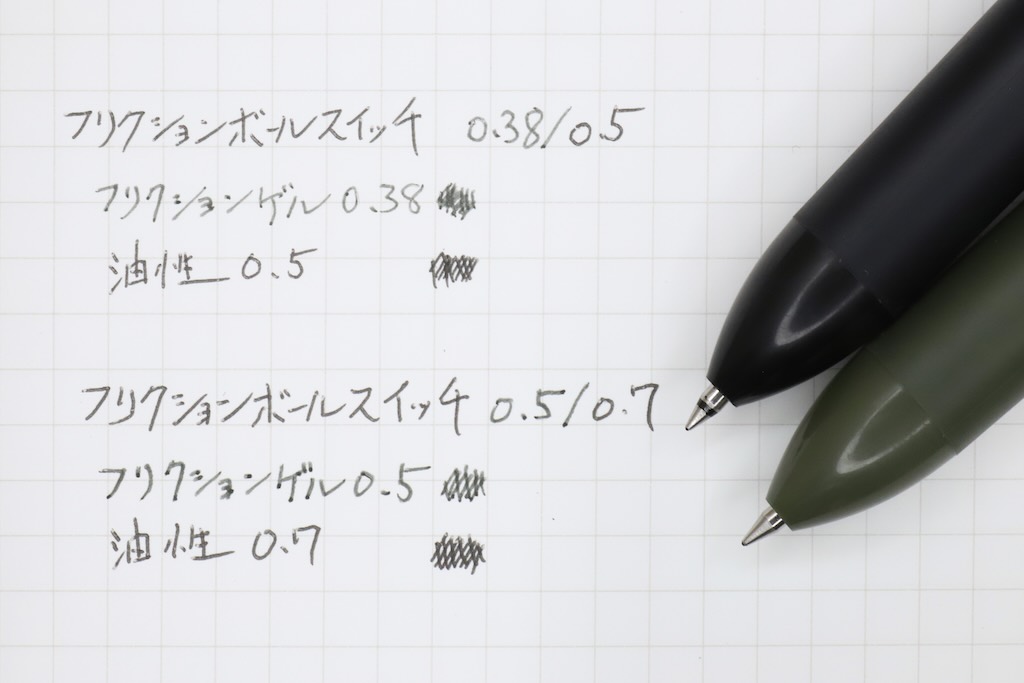 フリクションボールスイッチ 0.38/0.5
フリクションゲル 0.38
油性 0.5
フリクションボールスイッチ 0.5/0.7
フリクションゲル 0.5
油性 0.7